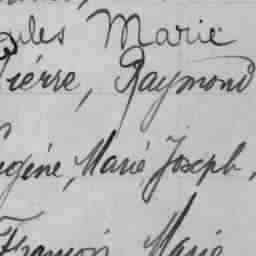 Jules Marie
Pierre, Raymond
Eugéne, Marie, Joseph,
François Marie